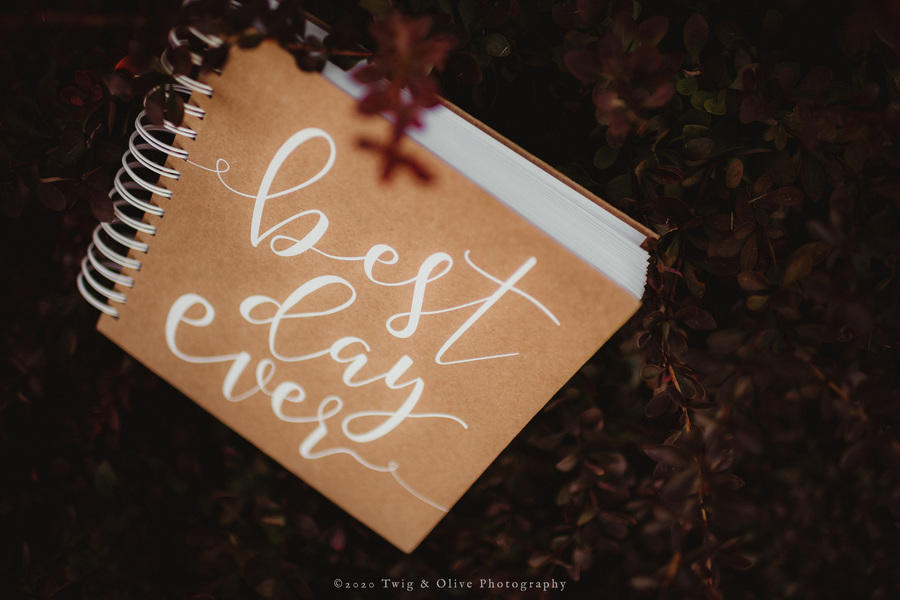 best
day
ever
©2020 Twig & Olive Photography